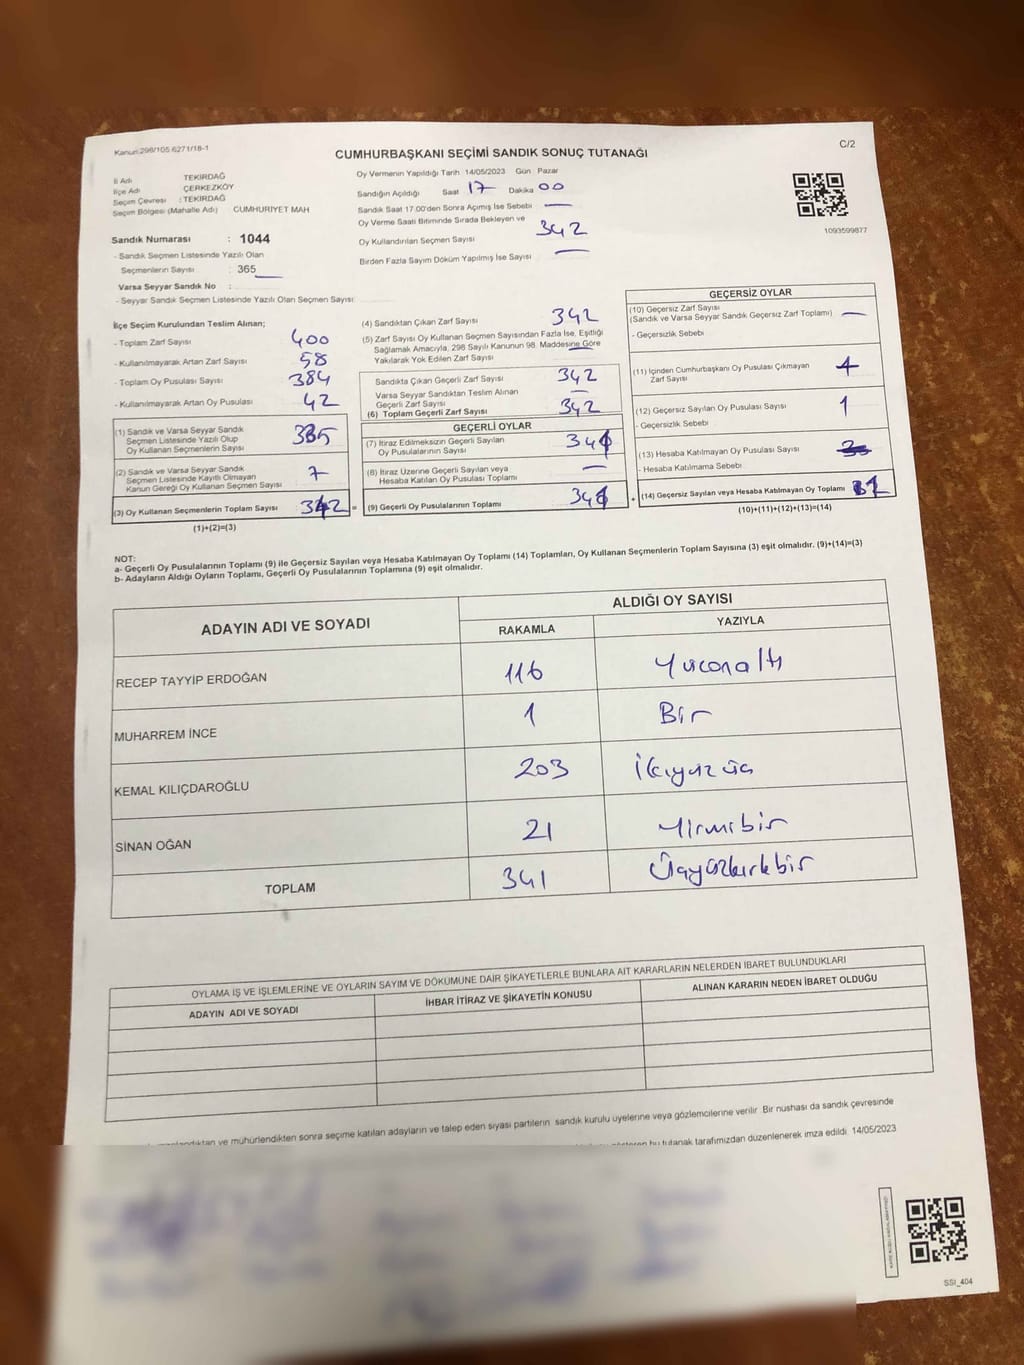 Kanun:298/105 6271/18-1
C/2
CUMHURBAŞKANI SEÇİMİ SANDIK SONUÇ TUTANAĞI
İl Adı TEKİRDAĞ
İlçe Adı ÇERKEZKÖY
Seçim Çevresi : TEKİRDAĞ
Seçim Bölgesi (Mahalle Adı) CUMHURİYET MAH
Sandık Numarası : 1044
- Sandık Seçmen Listesinde Yazılı Olan
Seçmenlerin Sayısı : 365
Varsa Seyyar Sandık No :
- Seyyar Sandık Seçmen Listesinde Yazılı Olan Seçmen Sayısı
Oy Vermenin Yapıldığı Tarih 14/05/2023 Gün Pazar
Sandığın Açıldığı Saat 17 Dakika 00
Sandık Saat 17.00'den Sonra Açımış İse Sebebi —
Oy Verme Saati Bitiminde Sırada Bekleyen ve
Oy Kullandırılan Seçmen Sayısı 342
Birden Fazla Sayım Döküm Yapılmış İse Sayısı —
1093599877
İlçe Seçim Kurulundan Teslim Alınan;
- Toplam Zarf Sayısı 400
- Kullanılmayarak Artan Zarf Sayısı 58
- Toplam Oy Pusulası Sayısı 384
- Kullanılmayarak Artan Oy Pusulası 42
(1) Sandık ve Varsa Seyyar Sandık
Seçmen Listesinde Yazılı Olup
Oy Kullanan Seçmenlerin Sayısı 335
(2) Sandık ve Varsa Seyyar Sandık
Seçmen Listesinde Kayıtlı Olmayan
Kanun Gereği Oy Kullanan Seçmen Sayısı 7
(3) Oy Kullanan Seçmenlerin Toplam Sayısı : 342 =
(1)+(2)=(3)
(4) Sandıktan Çıkan Zarf Sayısı 342
(5) Zarf Sayısı Oy Kullanan Seçmen Sayısından Fazla İse, Eşitliği
Sağlamak Amacıyla, 298 Sayılı Kanunun 98. Maddesine Göre
Yakılarak Yok Edilen Zarf Sayısı —
Sandıkta Çıkan Geçerli Zarf Sayısı 342
Varsa Seyyar Sandıktan Teslim Alınan
Geçerli Zarf Sayısı —
(6) Toplam Geçerli Zarf Sayısı 342
GEÇERLİ OYLAR
(7) İtiraz Edilmeksizin Geçerli Sayılan
Oy Pusulalarının Sayısı 341
(8) İtiraz Üzerine Geçerli Sayılan veya
Hesaba Katılan Oy Pusulası Toplamı —
(9) Geçerli Oy Pusulalarının Toplamı 341 +
GEÇERSİZ OYLAR
(10) Geçersiz Zarf Sayısı
(Sandık ve Varsa Seyyar Sandık Geçersiz Zarf Toplamı) —
- Geçersizlik Sebebi
(11) İçinden Cumhurbaşkanı Oy Pusulası Çıkmayan
Zarf Sayısı
(12) Geçersiz Sayılan Oy Pusulası Sayısı 1
- Geçersizlik Sebebi
(13) Hesaba Katılmayan Oy Pusulası Sayısı
- Hesaba Katılmama Sebebi
(14) Geçersiz Sayılan veya Hesaba Katılmayan Oy Toplamı
(10)+(11)+(12)+(13)=(14)
NOT:
a- Geçerli Oy Pusulalarının Toplamı (9) ile Geçersiz Sayılan veya Hesaba Katılmayan Oy Toplamı (14) Toplamları, Oy Kullanan Seçmenlerin Toplam Sayısına (3) eşit olmalıdır. (9)+(14)=(3)
b- Adayların Aldığı Oyların Toplamı, Geçerli Oy Pusulalarının Toplamına (9) eşit olmalıdır.
ADAYIN ADI VE SOYADI ALDIĞI OY SAYISI
RAKAMLA YAZIYLA
RECEP TAYYİP ERDOĞAN 116 Yüzonaltı
MUHARREM İNCE 1 Bir
KEMAL KILIÇDAROĞLU 203 İkiyüzüç
SİNAN OĞAN 21 Yirmibir
TOPLAM 341 Üçyüzkırkbir
OYLAMA İŞ VE İŞLEMLERİNE VE OYLARIN SAYIM VE DÖKÜMÜNE DAİR ŞİKAYETLERLE BUNLARA AİT KARARLARIN NELERDEN İBARET BULUNDUKLARI
ADAYIN ADI VE SOYADI İHBAR İTİRAZ VE ŞİKAYETİN KONUSU ALINAN KARARIN NEDEN İBARET OLDUĞU
ve mühürlendikten sonra seçime katılan adayların ve talep eden siyasi partilerin sandık kurulu üyelerine veya gözlemcilerine verilir. Bir nüshası da sandık çevresinde
bu tutanak tarafımızdan düzenlenerek imza edildi. 14/05/2023
SSI_404